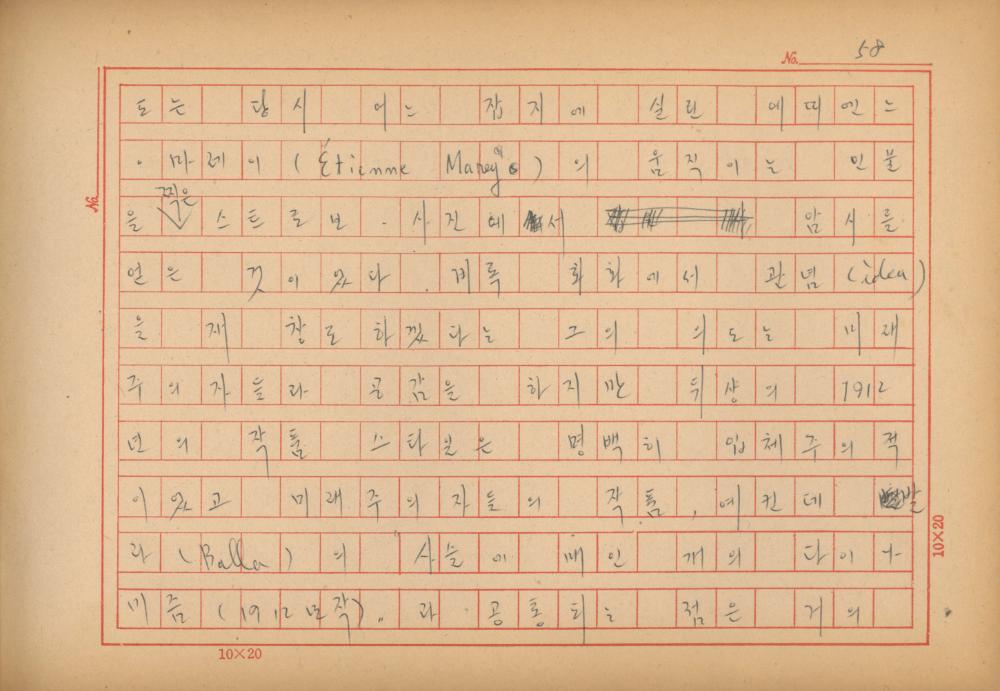 No. 58
도는 당시 어느 잡지에 실린 에띠엔느
·마레이(Étienne Marey)의 움직이는 인물
찍은
을 스트로보·사진에서 암시를
얻은 것이었다. 비록 회화에서 관념(idea)
을 재창조하겠다는 그의 의도는 미래
주의자들과 공감을 하지만 뒤샹의 1912
년의 작품 스타일은 명백히 입체주의적
이었고 미래주의자들의 작품, 예컨데 발
라(Balla)의 "사슬에 매인 개의 다이나
미즘(1912년작)"과 공통되는 점은 거의
No.
10×20
10×20